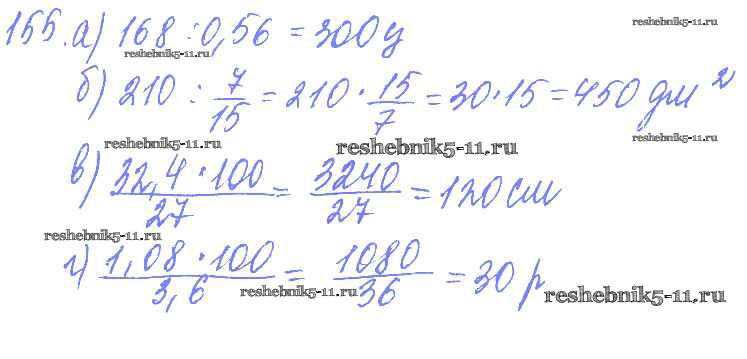 155. а) 168 : 0,56 = 300 ц
reshebnik5-11.ru
reshebnik5-11.ru
б) 210 : 7/15 = 210 · 15/7 = 30 · 15 = 450 дм²
reshebnik5-11.ru
reshebnik5-11.ru
reshebnik5-11.ru
в) 32,4 · 100/27 = 3240/27 = 120 см
reshebnik5-11.ru
г) 1,08 · 100/3,6 = 1080/36 = 30 р
reshebnik5-11.ru
reshebnik5-11.ru